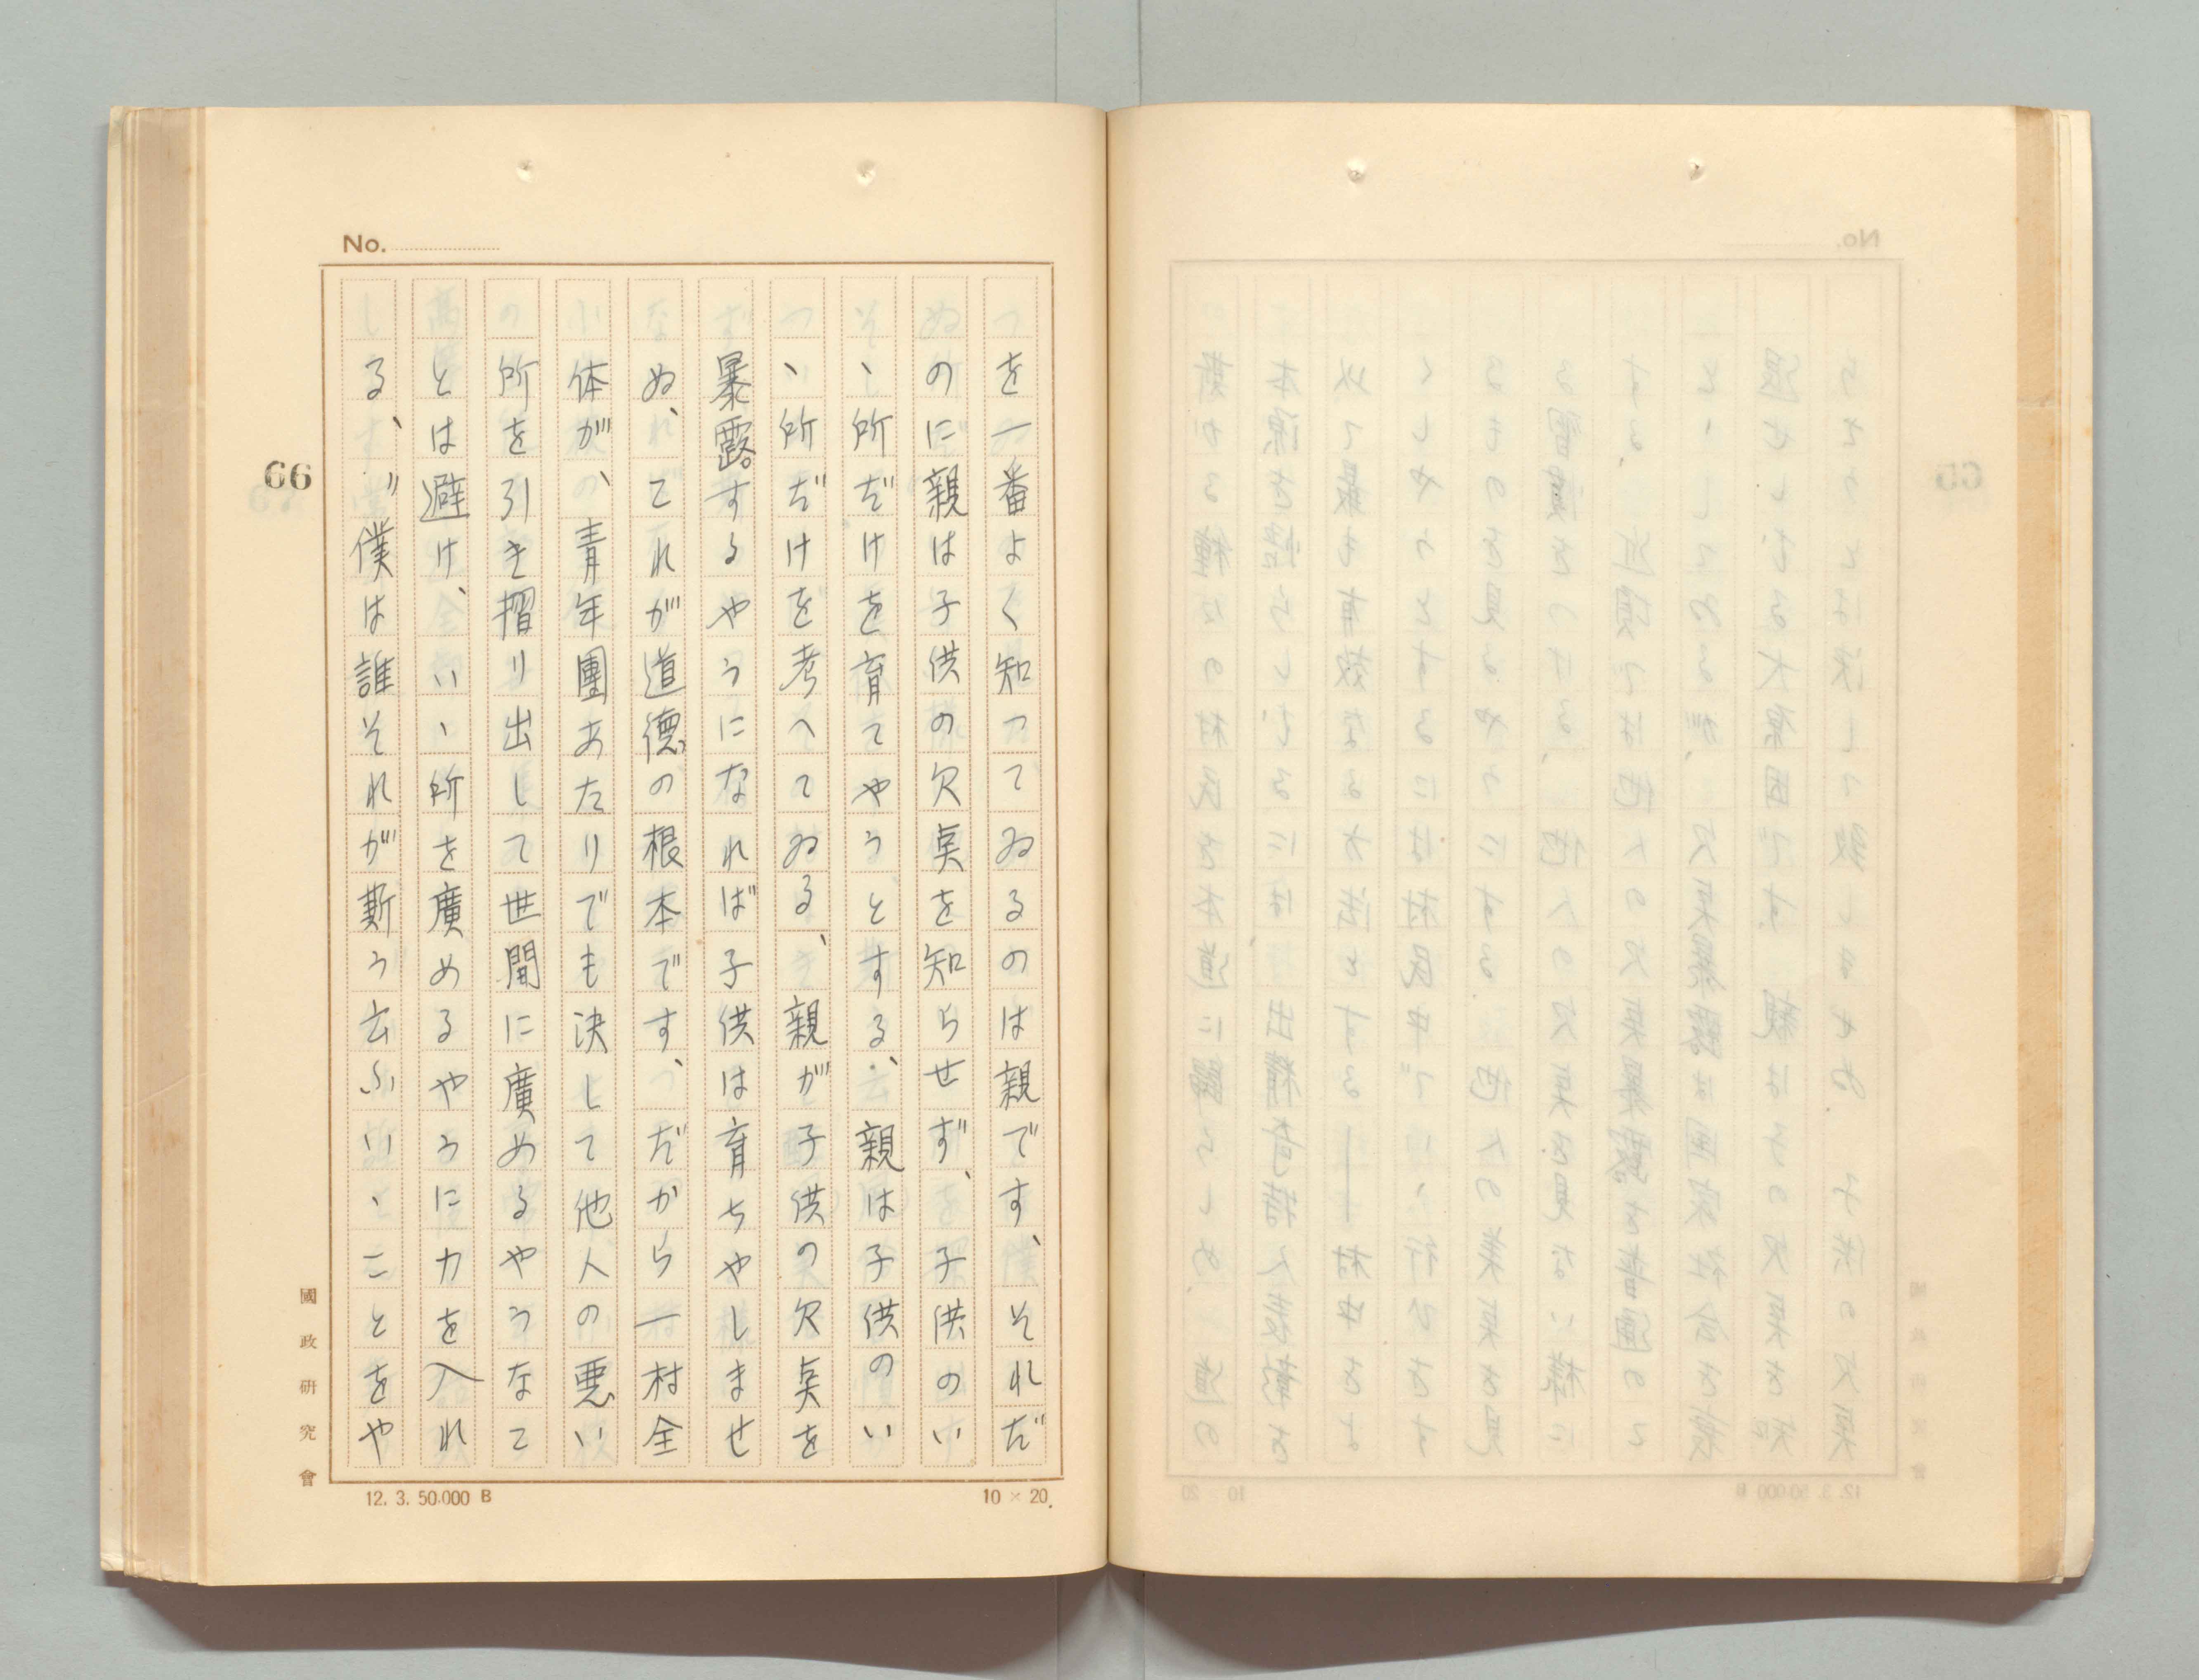 No.
を一番よく知つてゐるのは親です、それだ
のに親は子供の欠奌を知らせず、子供のい
ゝ所だけを育てやうとする、親は子供のい
ゝ所だけを考へてゐる、親が子供の欠奌を
暴露するやうになれば子供は育ちやしませ
ぬ、これが道徳の根本です、だから一村全
体が、青年團あたりでも決して他人の悪い
所を引き摺り出して世間に廣めるやうなこ
とは避け、いゝ所を廣めるやうに力を入れ
る、〃僕は誰それが斯う云ふいゝことをや
66
國政研究會
12. 3. 50.000 B
10 × 20.